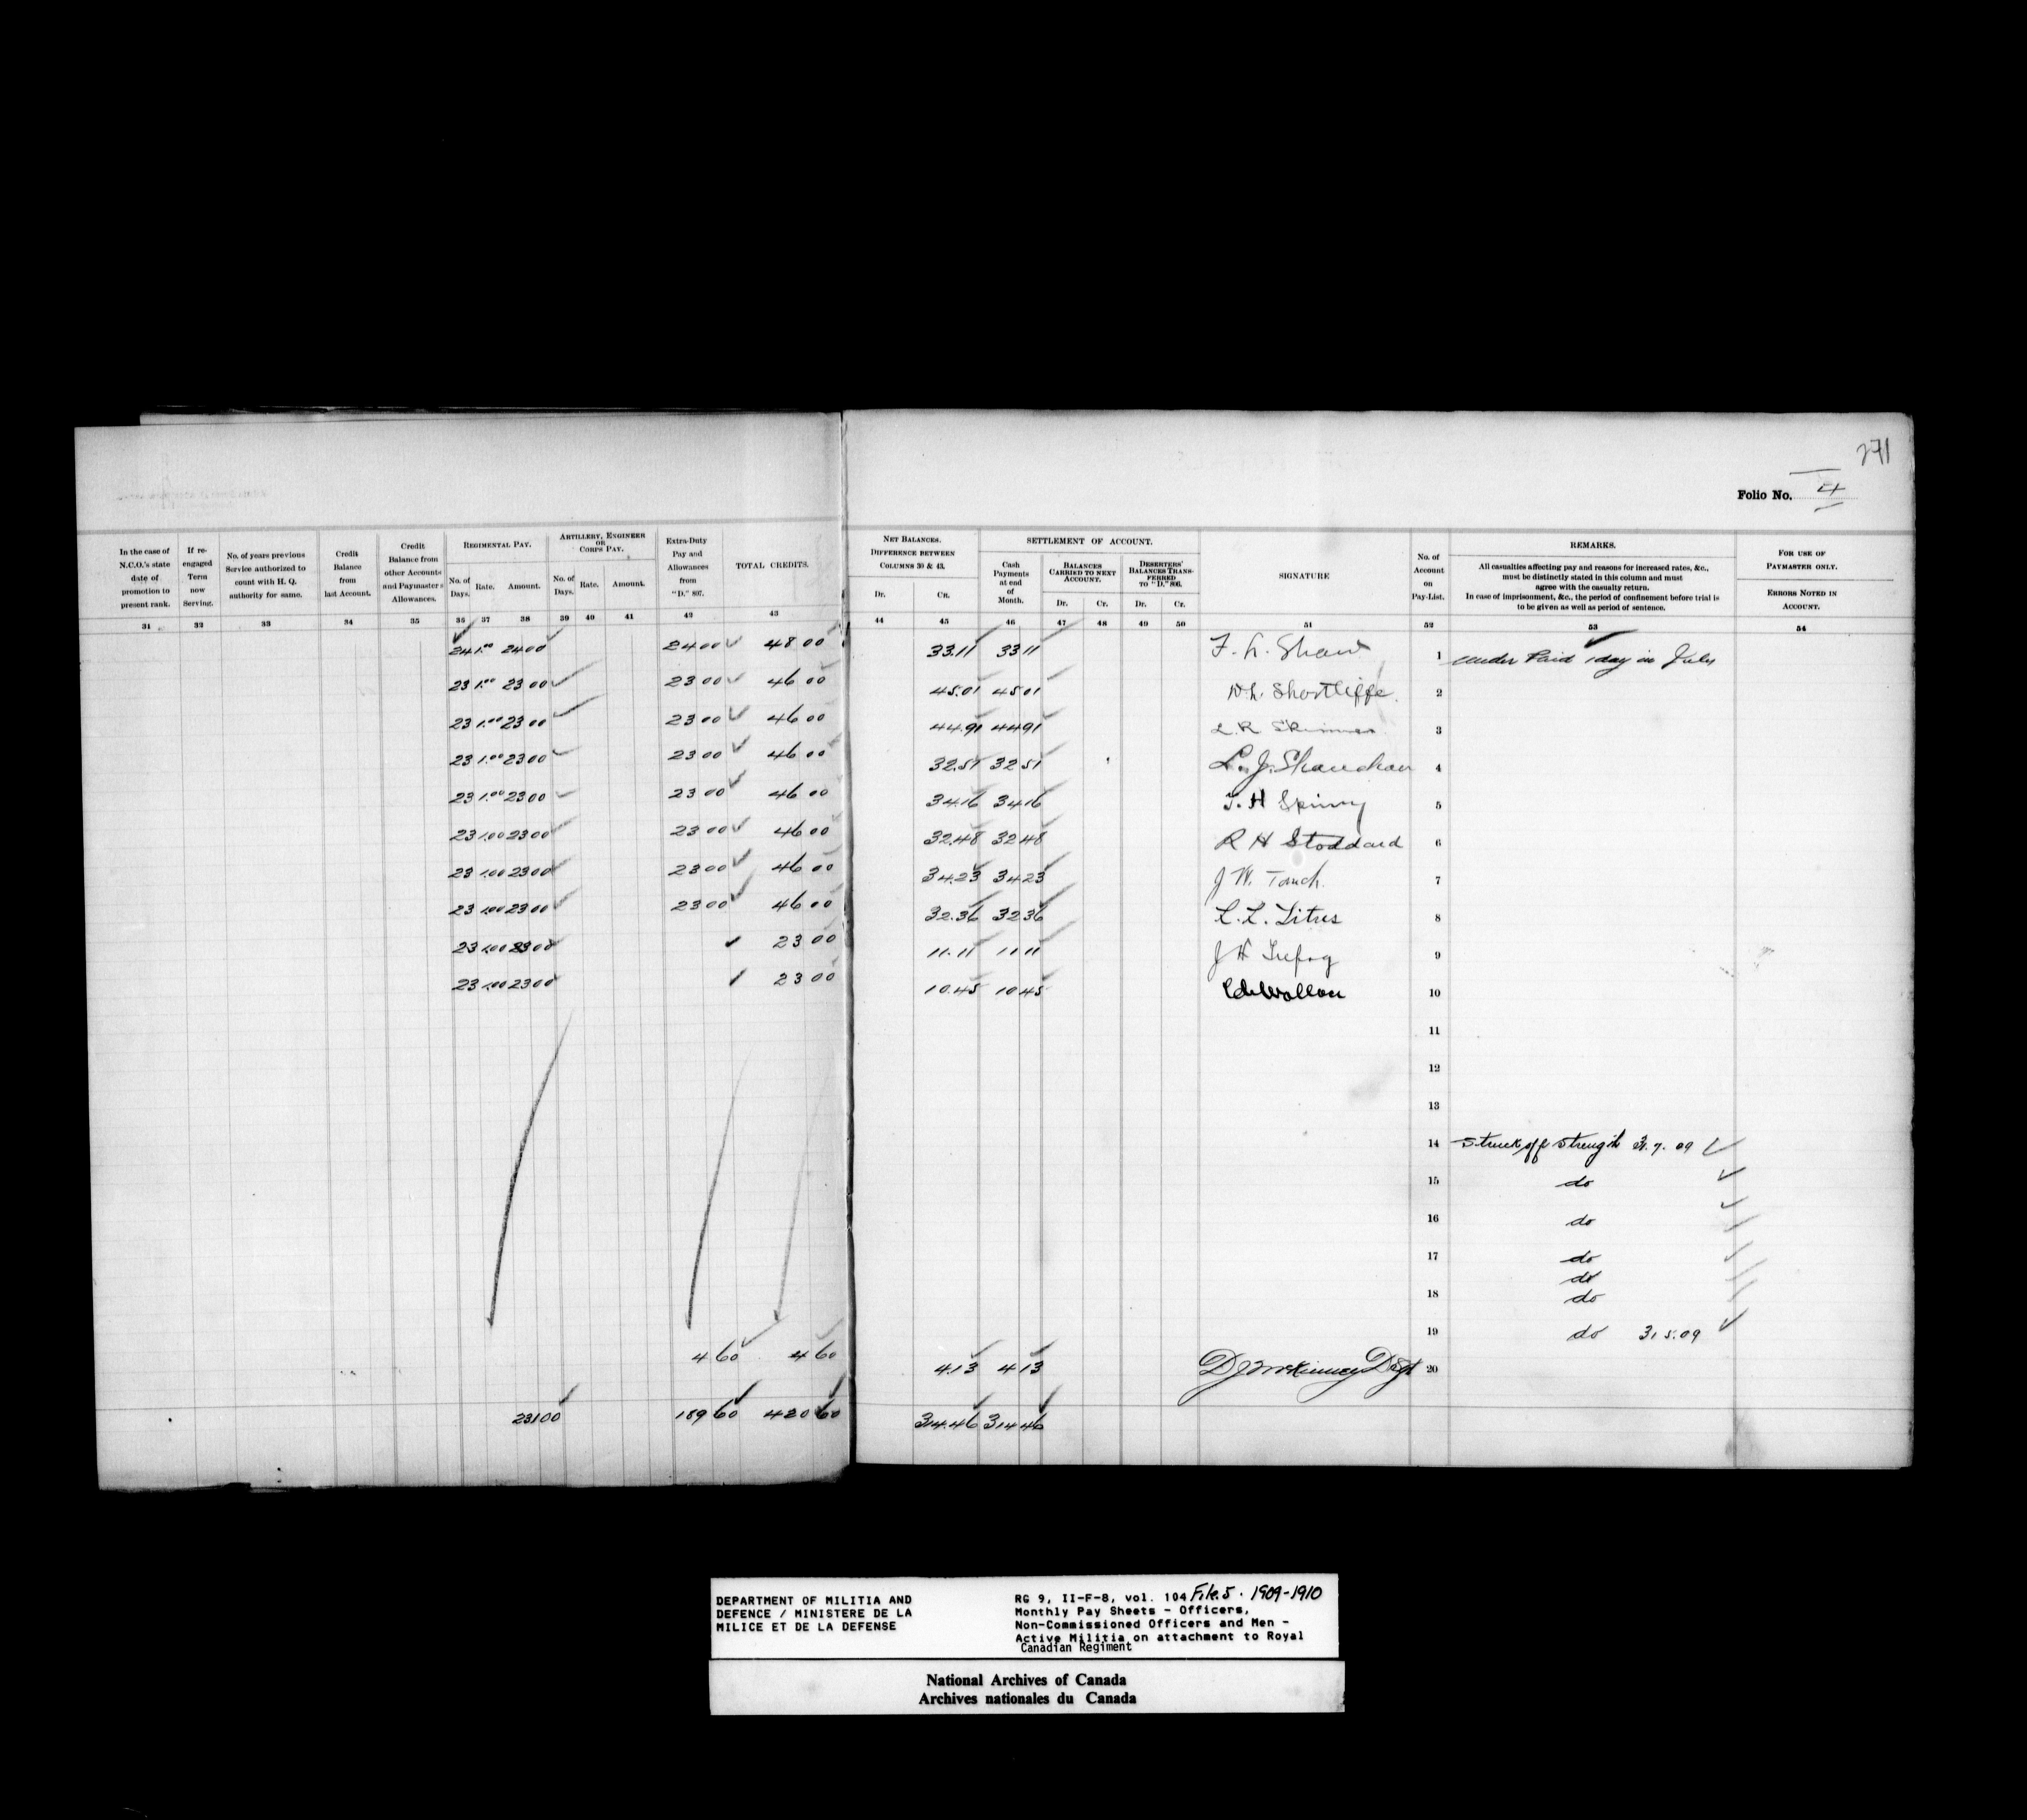 271
Folio No. 4
In the case of N.C.O.'s state date of promotion to present rank.
If re-engaged Term now Serving.
No. of years previous Service authorized to count with H. Q. authority for same.
Credit Balance from last Account.
Credit Balance from other Accounts and Paymaster's Allowances.
REGIMENTAL PAY.
No. of Days. Rate. Amount.
ARTILLERY, ENGINEER OR CORPS PAY.
No. of Days. Rate. Amount.
Extra-Duty Pay and Allowances from "D." 807.
TOTAL CREDITS.
NET BALANCES.
DIFFERENCE BETWEEN COLUMNS 30 & 43.
Dr. Cr.
SETTLEMENT OF ACCOUNT.
Cash Payments at end of Month.
BALANCES CARRIED TO NEXT ACCOUNT.
Dr. Cr.
DESERTERS' BALANCES TRANSFERRED TO "D." 806.
Dr. Cr.
SIGNATURE
No. of Account on Pay-List.
REMARKS.
All casualties affecting pay and reasons for increased rates, &c.,
must be distinctly stated in this column and must
agree with the casualty return.
In case of imprisonment, &c., the period of confinement before trial is
to be given as well as period of sentence.
FOR USE OF PAYMASTER ONLY.
ERRORS NOTED IN ACCOUNT.
31 32 33 34 35 36 37 38 39 40 41 42 43 44 45 46 47 48 49 50 51 52 53 54
24 1.00 24 00 24 00 48 00 33.11 33 11 F. L. Shaw 1 Under Paid 1 day in July
23 1.00 23 00 23 00 46 00 45.01 45 01 Shortliffe 2
23 1.00 23 00 23 00 46 00 44.91 44 91 L. R. Skinner 3
23 1.00 23 00 23 00 46 00 32.51 32 51 L. J. 4
23 1.00 23 00 23 00 46 00 34.16 34 16 H Spinny 5
23 1.00 23 00 23 00 46 00 32.48 32 48 R H Stoddard 6
23 1.00 23 00 23 00 46 00 34.23 34 23 J W. 7
23 1.00 23 00 23 00 46 00 32.36 32 36 L. L. Titus 8
23 1.00 23 00 23 00 11.11 11 11 9
23 1.00 23 00 23 00 10.45 10 45 10
11
12
13
14 Struck off strength 31.7.09
15 do
16 do
17 do
do
18 do
19 do 31.5.09
4 60 4 60 4.13 4 13 D J McKinney 20
231 00 189 60 420 60 314.46 314 46
DEPARTMENT OF MILITIA AND
DEFENCE / MINISTERE DE LA
MILICE ET DE LA DEFENSE
RG 9, II-F-8, vol. 104 File 5. 1909-1910
Monthly Pay Sheets - Officers,
Non-Commissioned Officers and Men -
Active Militia on attachment to Royal
Canadian Regiment
National Archives of Canada
Archives nationales du Canada